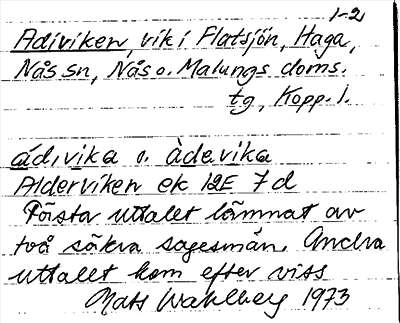 1-2
Adiviken, vik i Flatsjön, Haga,
Nås sn, Nås o. Malungs doms.
tg, Kopp. l.
ádıvika o. àdavika
Alderviken ek 12E 7d
Första uttalet lämnat av
två säkra sagesmän. Andra
uttalet kom efter viss
Mats Wahlberg 1973